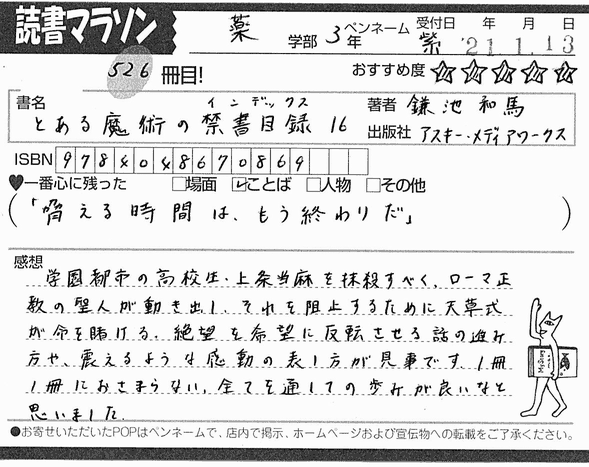 読書マラソン
薬 学部 3年 ペンネーム 紫 受付日 年 月 日 '21.1.13
526 冊目! おすすめ度 ☆☆☆☆☆
インデックス
書名 とある魔術の禁書目録 16 著者 鎌池和馬
出版社 アスキー・メディアワークス
ISBN 9784048670869
♥一番心に残った □場面 ☑ことば □人物 □その他
(「脅える時間は、もう終わりだ」)
感想
学園都市の高校生・上条当麻を抹殺すべく、ローマ正
教の聖人が動き出し、それを阻止するために天草式
が命を賭ける。絶望を希望に反転させる話の進み
方や、震えるような感動の表し方が見事です。1冊
1冊におさまらない、全てを通しての歩みが良いなと
思いました。
●お寄せいただいたPOPはペンネームで、店内で掲示、ホームページおよび宣伝物への転載をご了承ください。